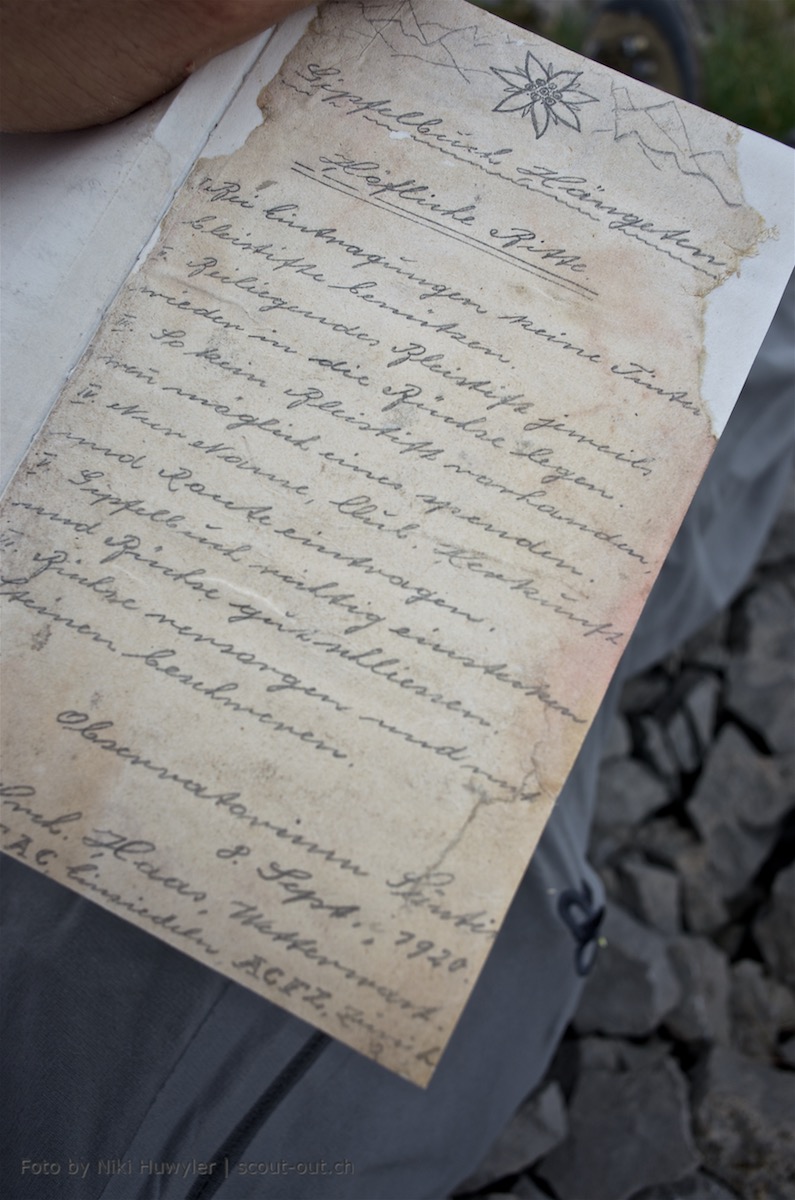 Gipfelbuch Hängeten
Höfliche Bitte
I. Bei Eintragungen keine Tinten
bleistifte benützen.
II. Beiliegendes Bleistift jeweils
wieder in die Büchse legen.
III. So kein Bleistift vorhanden,
wen möglich eines spenden.
IV. Nur Name, Club. Herkunft
und Route eintragen.
V. Gipfelbuch richtig einstecken
und Büchse gut schliessen.
VI. Büchse versorgen und mit
Steinen beschweren.
Observatorium Säntis
8. Sept., 1920
Haas, Wetterwart.
A.C. Einsiedeln A.C.F.Z. Zürich
Foto by Niki Huwyler | scout-out.ch